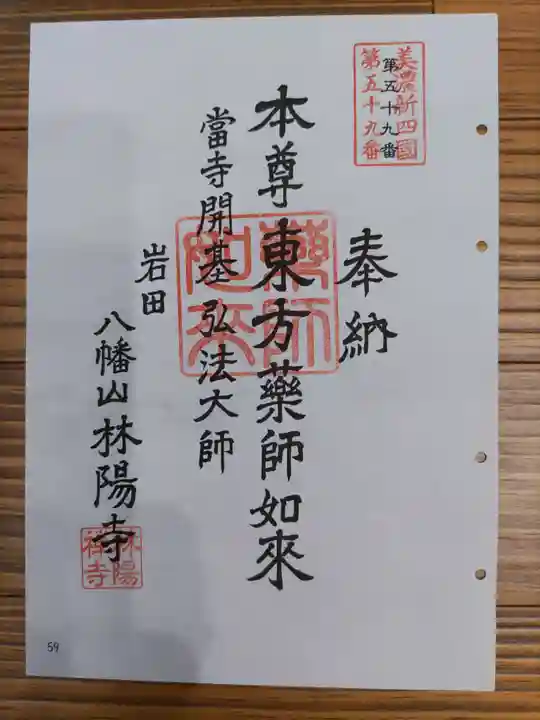 美濃新四國
第五十九番
第五十九番
奉納
本尊東方藥師如來
藥師如來
當寺開基弘法大師
岩田
八幡山林陽寺
林陽禅寺
59